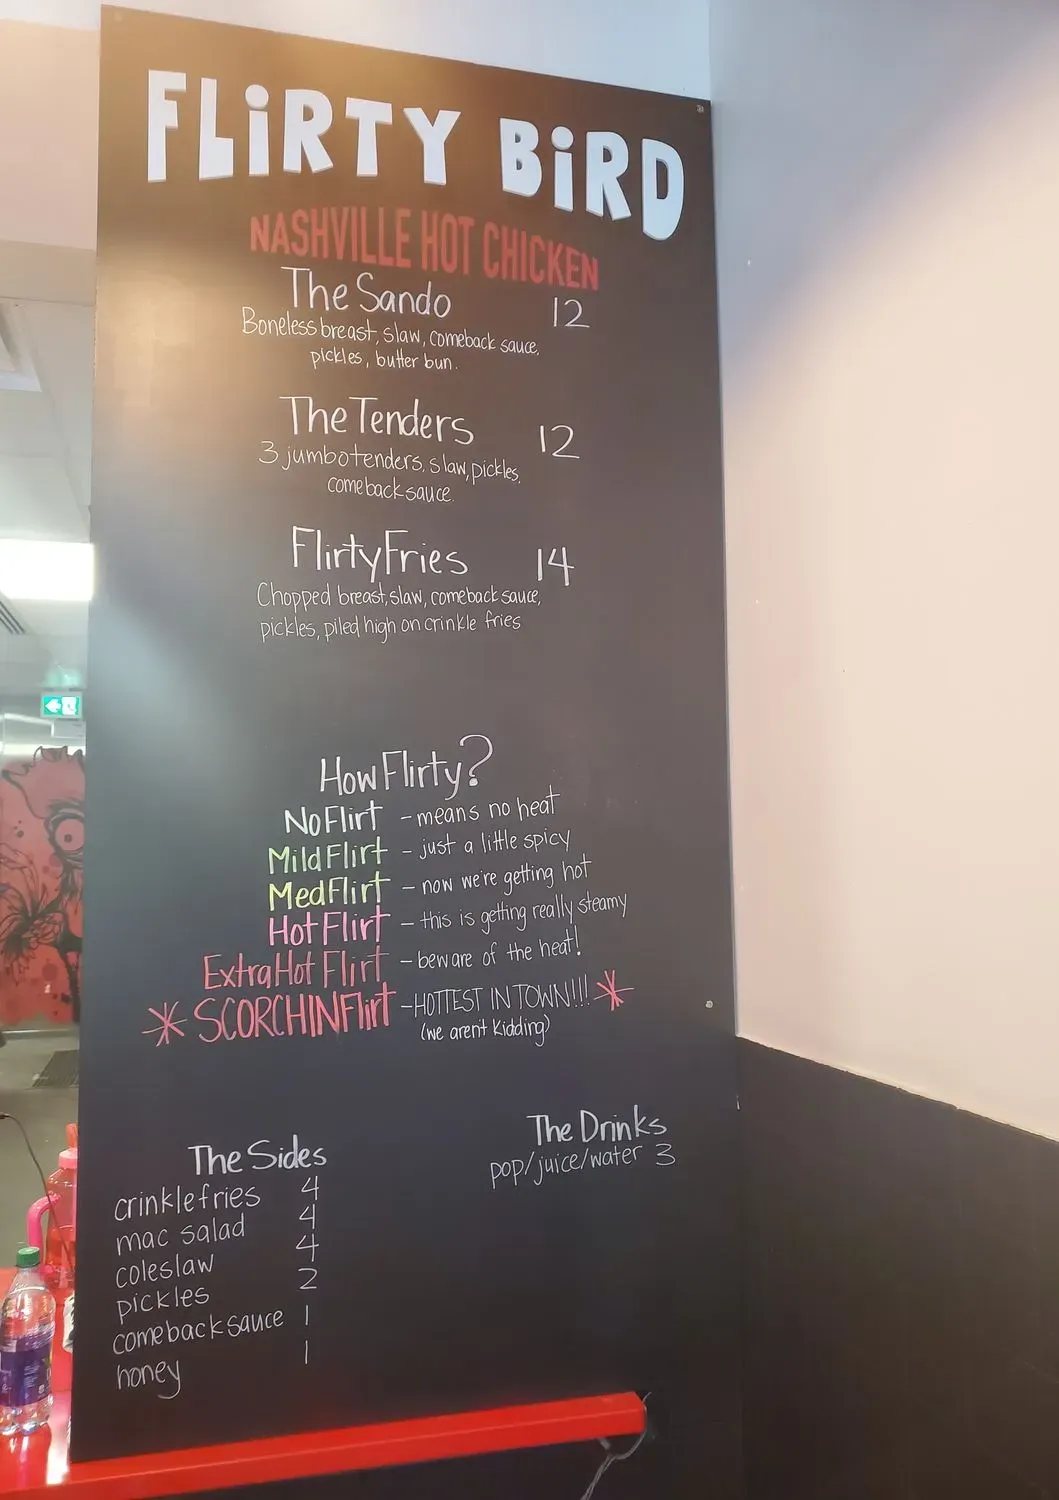 FLiRTY BiRD
NASHVILLE HOT CHICKEN
The Sando 12
Boneless breast, slaw, comeback sauce,
pickles, butter bun.
The Tenders 12
3 jumbo tenders, slaw, pickles,
comeback sauce.
Flirty Fries 14
Chopped breast, slaw, comeback sauce,
pickles, piled high on crinkle fries
How Flirty?
No Flirt - means no heat
Mild Flirt - just a little spicy
Med Flirt - now we're getting hot
Hot Flirt - this is getting really steamy
Extra Hot Flirt - beware of the heat!
* SCORCHIN Flirt - HOTTEST IN TOWN!!! *
(we arent kidding)
The Sides
crinkle fries 4
mac salad 4
coleslaw 4
pickles 2
comeback sauce 1
honey 1
The Drinks
pop/juice/water 3